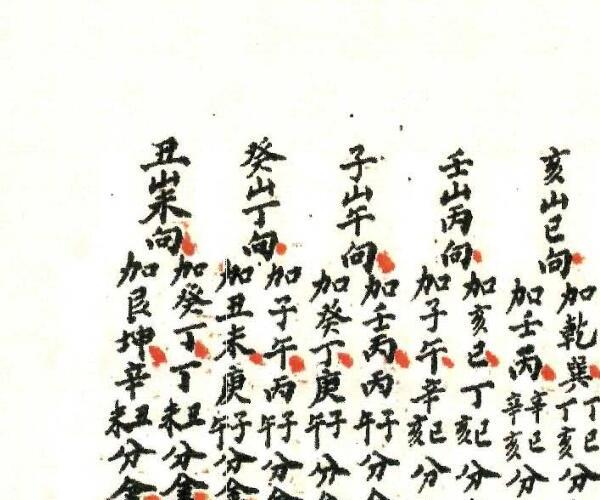 亥山巳向
加乾巽丁巳丁亥分
加壬丙辛巳辛亥分
壬山丙向
加亥巳丁巳亥分
加子午辛巳亥分
子山午向
加壬丙丙子午分
加癸丁庚子午分
癸山丁向
加子午丙子午分金
加丑未庚子午分金
丑山未向
加癸丁丁丑未分金
加艮坤辛丑未分金